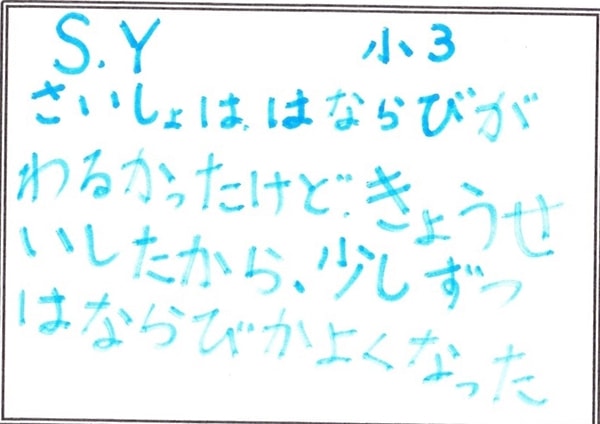 S.Y 小3
さいしょは、はならびが
わるかったけど、きょうせ
いしたから、少しずつ
はならびかよくなった